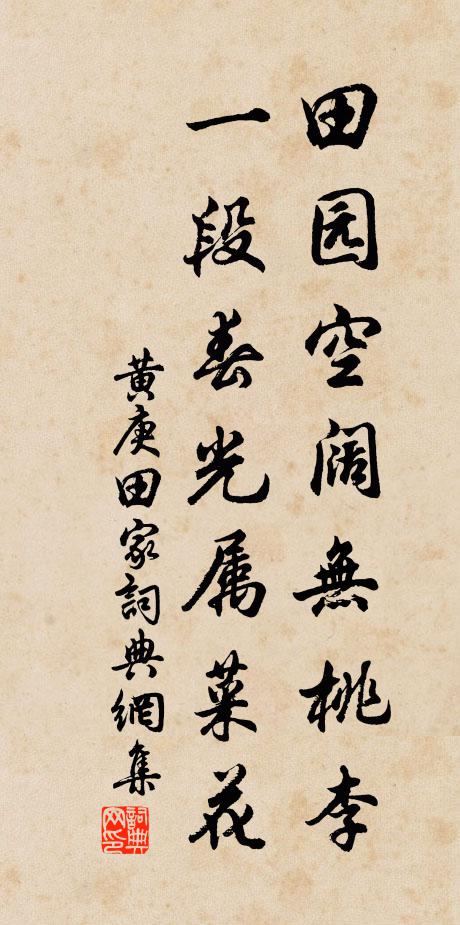 田园空阔無桃李
一段春光属菜花
黄庚田家詞典網集
詞典
网印